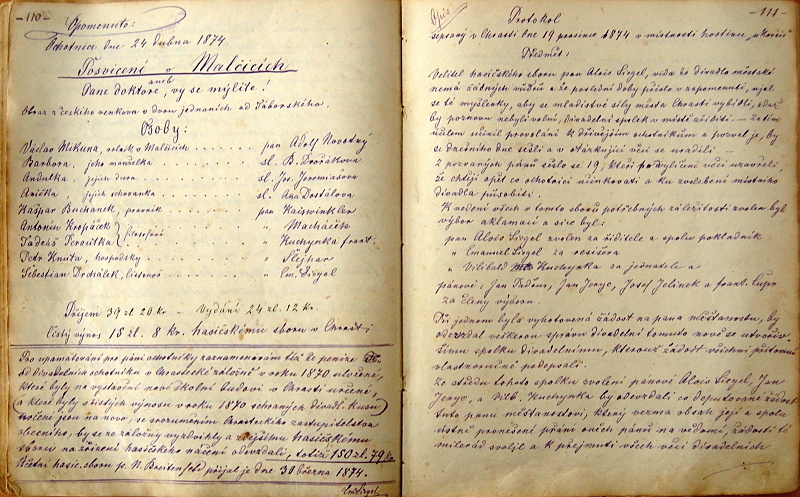 -110-
Opomenuto:
Ochotníci dne 24 dubna 1874.
Posvícení v Malčicích
aneb
Pane doktore, vy se mýlíte!
Obraz z českého venkova v dvou jednáních od Táborského.
Osoby:
Václav Mikuna, rolník v Malčicích . . . . pan Adolf Novotný
Barbora, jeho manželka . . . . sl. B. Dvořákova
Andulka, jejich dcera . . . . sl. Jos. Jeremiašova
Ančička, jejich schovanka . . . . sl. Ana Dostálova
Kašpar Buchanek, pravník . . . . pan Kaisvinkler
Antonín Kropáček } filosofové . . . . " Macháček
Tadeáš Pervitka . . . . " Kuchynka frant.
Petr Knuta, hospodský . . . . " Šlejhar
Sebestian Drchálek, . . . . " Em. Siegel
Příjem 39 zl 20 kr. – Vydání 24 zl. 12 kr.
Čistý výnos 15 zl. 8 kr. hasičskému sboru v Chrasti
Pro upamatování pro pány ochotníky zaznamenávám též že peníze
od divadelních ochotníků v Chrastecké záložně v roku 1870 uložené,
které byly na vystavění nové školní budovi v Chrasti určené,
a které byly z čistých výnosů v roku 1870 sehraných divadl. kusů
určení jsou na novo, se srozuměním Chrasteckého zastupitelstva
obecního, by se ze záložny vyzdvihly a zdejšímu hasičskému
sboru na zřízení hasičského náčení odevzdali, totiž 150 zl. 79 kr.
Účetní hasič. sboru p. N. Breitenfeld přijal je dne 30 března 1874.
Em. Siegel
-111-
Opis
Protokol
sepsaný v Chrasti dne 19 prosince 1874 v místnosti hostince
Předmět:
Velitel hasičského sboru pan Alois Siegel, vida že divadlo městské
nemá žádných vůdců a že poslední doby přišlo v zapomenutí, ujal
se té myslénky, aby se mladistvé síly města Chrasti vybídli, a
by poznovu nebyli volni, divadelní spolek v místě zříditi. – Za tím
účelem učinil provolání k dřívějším ochotníkům a pozval je, by
se dnešního dne sešli a o otázkující věci se uradili –
Z pozvaných pánů sešlo se 19, kteří po vylíčení věci uzavřeli,
že chtějí opět co ochotníci účinkovati a ku zvelebení místního
divadla působiti.
K vedení všech v tomto sboru potřebných záležitostí zvolen byl
výbor aklamací a sice byl:
pan Alois Siegel zvolen za řiditele a spolu pokladník
" Emanuel Siegel za resiséra
" Vilibald Kuchynka za jednatele a
pánové: Jan Tadeus, Jan Jeryo, Josef Jelinek a frant. Čupr
za členy výboru.
Při jednom byla vyhotovená žádost na pana měšťanostu, by
odevzdal veškerou správu divadelní tomuto nově se utvořiv-
šímu spolku divadelnímu, kterouž žádost všichni přítomní
vlastnoručně podepsali.
Ze středu tohoto spolku zvoleni pánové Alois Siegel, Jan
Jeryo, a Vilb. Kuchynka by odevzdali co deputované žádost
tuto panu měšťanostovi, který vezma obsah její a spolu
ústné pronešení přání oněch pánů na vědomí, žádosti té
milerád svolil a k přejmutí všech věcí divadelních